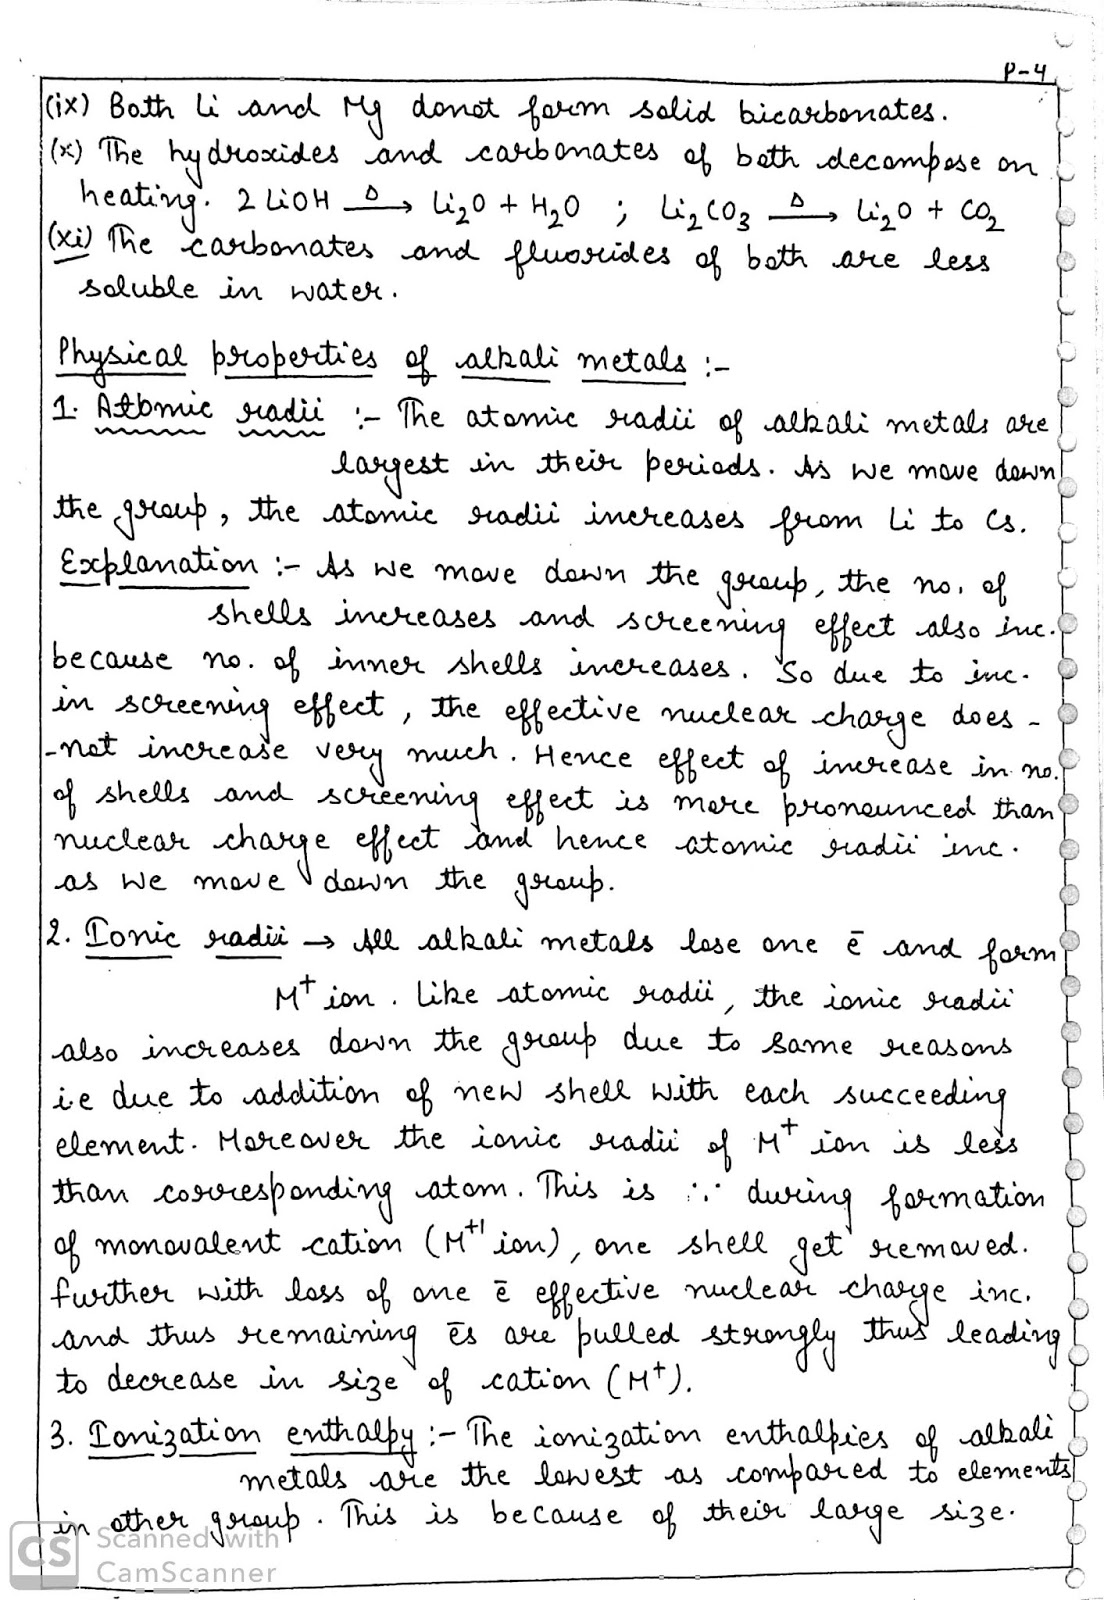 P-4
(ix) Both Li and Mg donot form solid bicarbonates.
(x) The hydroxides and carbonates of both decompose on
heating. 2 LiOH —Δ→ Li₂O + H₂O ; Li₂CO₃ —Δ→ Li₂O + CO₂
(xi) The carbonates and fluorides of both are less
soluble in water.
Physical properties of alkali metals :-
1. Atomic radii :- The atomic radii of alkali metals are
largest in their periods. As we move down
the group, the atomic radii increases from Li to Cs.
Explanation :- As we move down the group, the no. of
shells increases and screening effect also inc.
because no. of inner shells increases. So due to inc.
in screening effect, the effective nuclear charge does -
-not increase very much. Hence effect of increase in no.
of shells and screening effect is more pronounced than
nuclear charge effect and hence atomic radii inc.
as we move down the group.
2. Ionic radii → All alkali metals lose one ē and form
M⁺ ion. Like atomic radii, the ionic radii
also increases down the group due to same reasons
i.e due to addition of new shell with each succeeding
element. Moreover the ionic radii of M⁺ ion is less
than corresponding atom. This is ∵ during formation
of monovalent cation (M⁺¹ ion), one shell get removed.
Further with loss of one ē effective nuclear charge inc.
and thus remaining ēs are pulled strongly thus leading
to decrease in size of cation (M⁺).
3. Ionization enthalpy :- The ionization enthalpies of alkali
metals are the lowest as compared to elements
in other group. This is because of their large size.
CS Scanned with
CamScanner